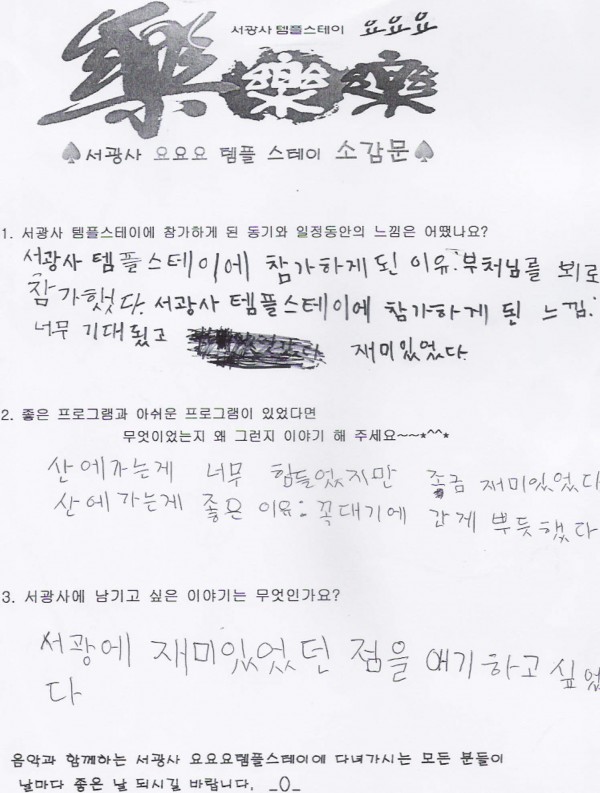 서광사 템플스테이 요요요
樂 樂 樂
서광사 요요요 템플 스테이 소감문
1. 서광사 템플스테이에 참가하게 된 동기와 일정동안의 느낌은 어땠나요?
서광사 템플스테이에 참가하게된 이유:부처님를 뵈로
참가했다. 서광사 템플스테이에 참가하게 된 느낌:
너무 기대됬고 재미있었다.
2. 좋은 프로그램과 아쉬운 프로그램이 있었다면
무엇이었는지 왜 그런지 이야기 해 주세요~~*^^*
산에가는게 너무 힘들었지만 조금 재미있었다
산에가는게 좋은 이유: 꼭대기에 간게 뿌듯했다
3. 서광사에 남기고 싶은 이야기는 무엇인가요?
서광에 재미있었던 점을 얘기하고 싶었
다
음악과 함께하는 서광사 요요요템플스테이에 다녀가시는 모든 분들이
날마다 좋은 날 되시길 바랍니다. _O_